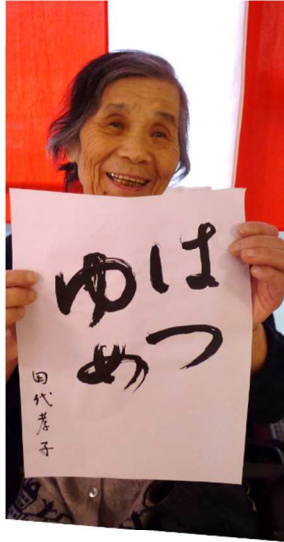 はつ
ゆめ
田代孝子